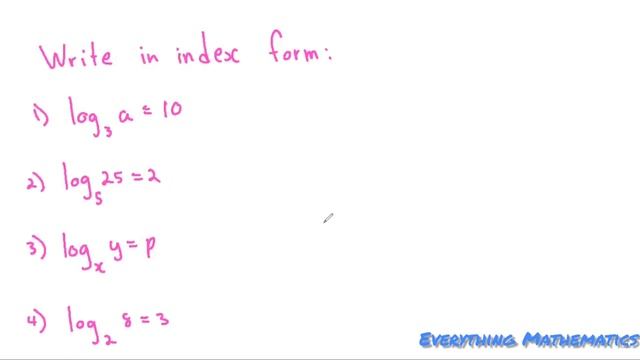 Write in index form:
1) log₃ a = 10
2) log₅ 25 = 2
3) logₓ y = p
4) log₂ 8 = 3
EVERYTHING MATHEMATICS